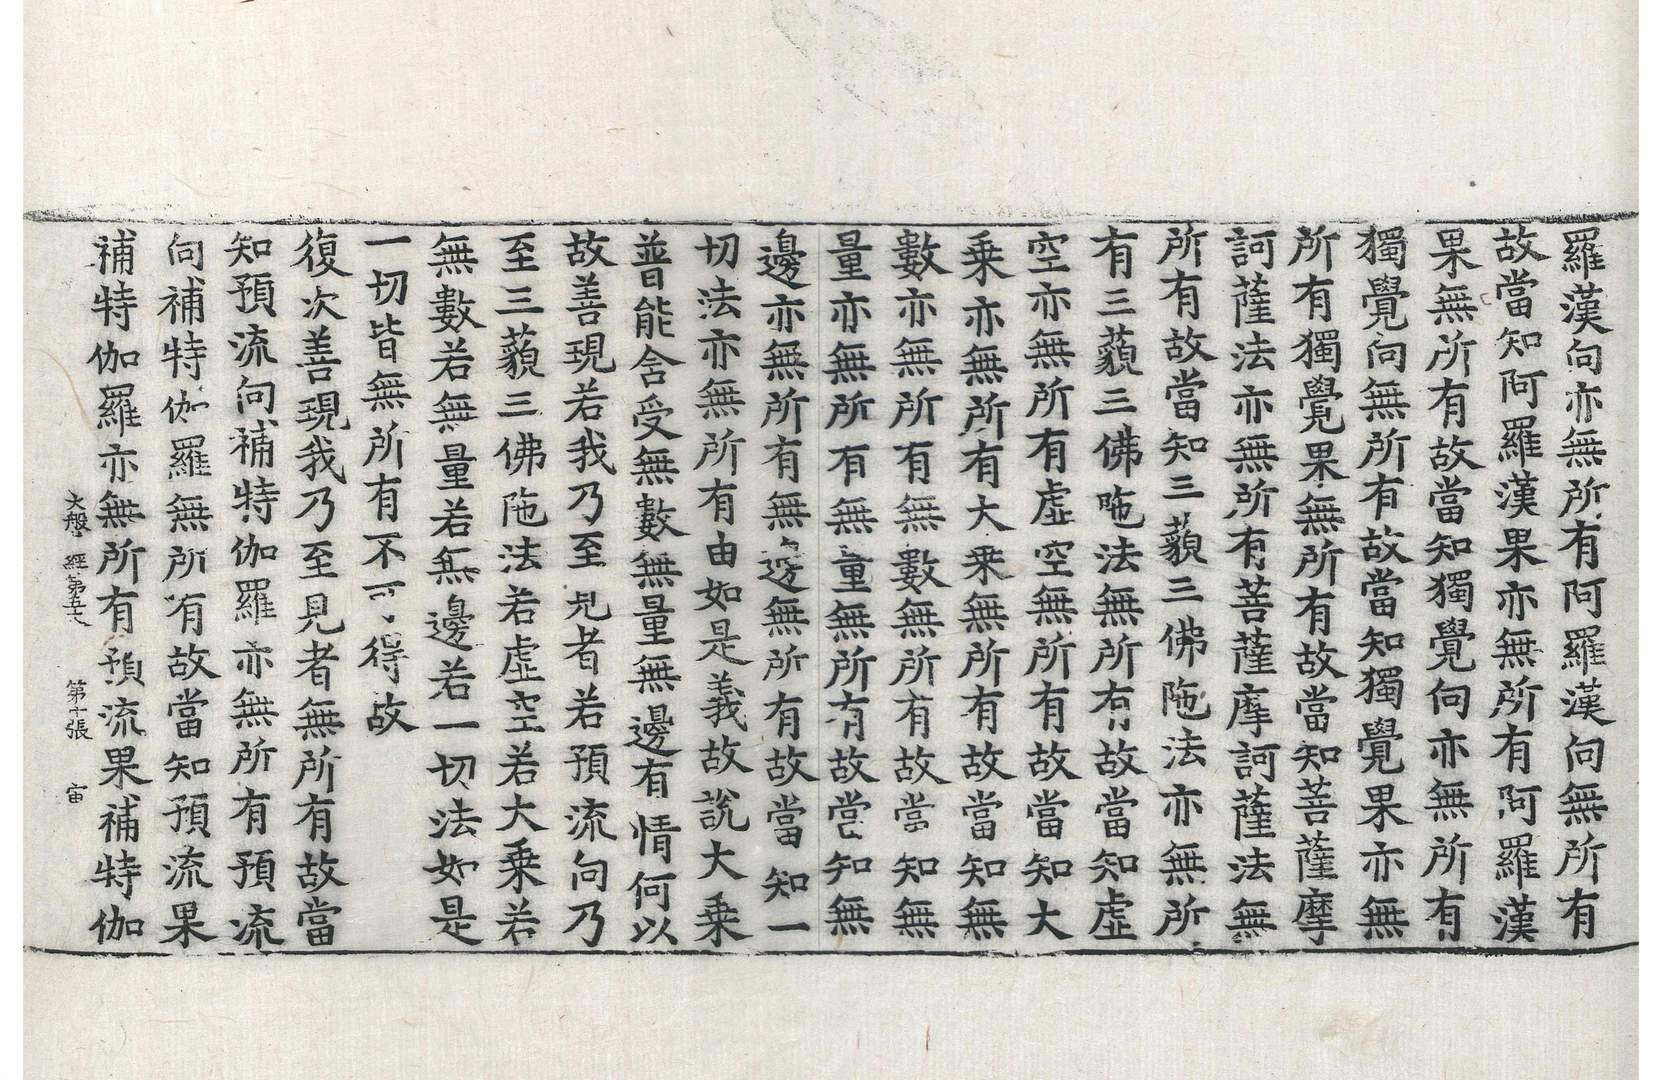 羅漢向亦無所有阿羅漢向無所有
故當知阿羅漢果亦無所有阿羅漢
果無所有故當知獨覺向亦無所有
獨覺向無所有故當知獨覺果亦無
所有獨覺果無所有故當知菩薩摩
訶薩法亦無所有菩薩摩訶薩法無
所有故當知三藐三佛陁法亦無所
有三藐三佛陁法無所有故當知虛
空亦無所有虛空無所有故當知大
乘亦無所有大乘無所有故當知無
數亦無所有無數無所有故當知無
量亦無所有無量無所有故當知無
邊亦無所有無邊無所有故當知一
切法亦無所有由如是義故說大乘
普能含受無數無量無邊有情何以
故善現若我乃至見者若預流向乃
至三藐三佛陁法若虛空若大乘若
無數若無量若無邊若一切法如是
一切皆無所有不可得故
復次善現我乃至見者無所有故當
知預流向補特伽羅亦無所有預流
向補特伽羅無所有故當知預流果
補特伽羅亦無所有預流果補特伽
大般 經第五 第十張 宙